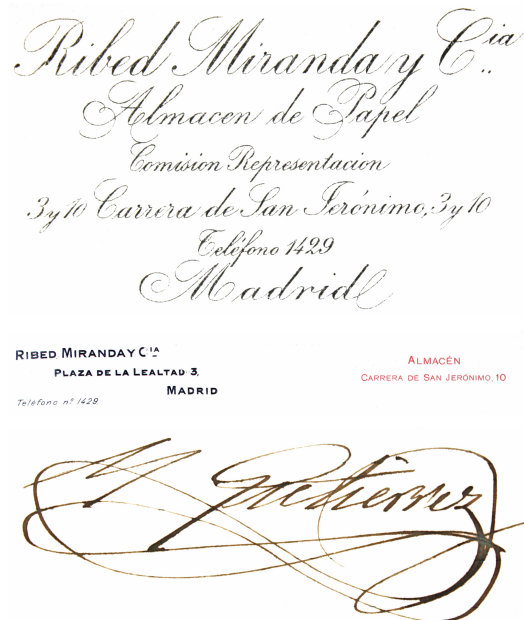 Ribed Miranda y C.ia
Almacen de Papel
Comision Representacion
3 y 10 Carrera de San Jerónimo, 3 y 10
Teléfono 1429
Madrid
RIBED MIRANDA Y Cia
PLAZA DE LA LEALTAD 3,
MADRID
Teléfono nº 1429
ALMACÉN
CARRERA DE SAN JERÓNIMO, 10
Gutierrez